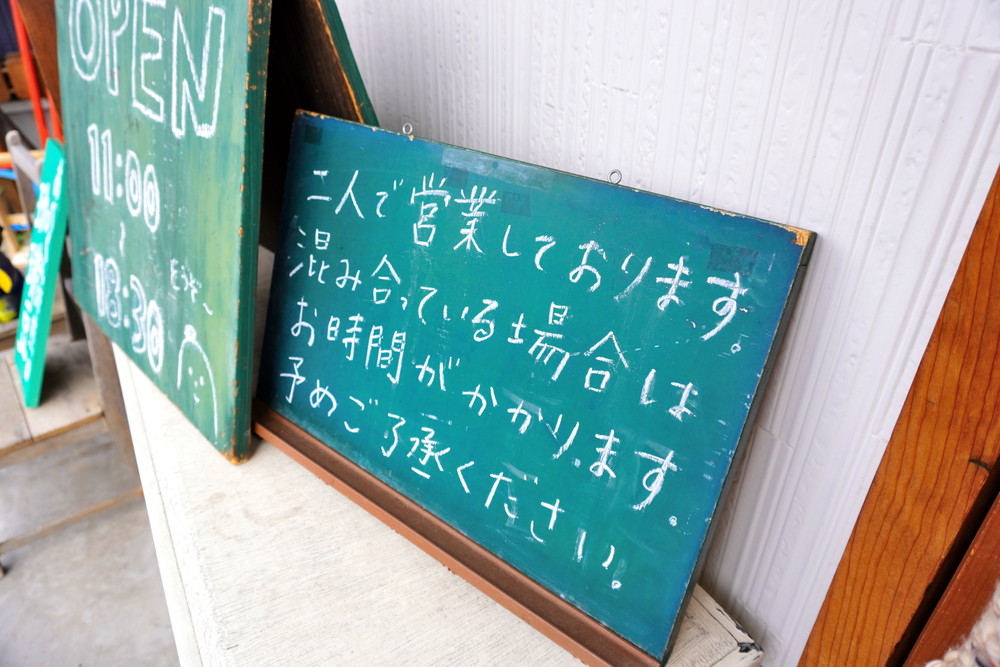 OPEN
11:00
~
18:30
どうぞ~
二人で営業しております。
混み合っている場合は
お時間がかかります。
予めご了承ください。